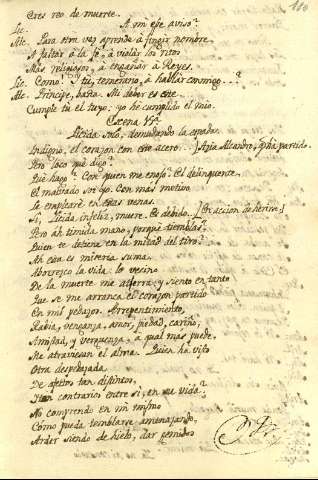 110
Eres reo de muerte.
Lic. A mi ese aviso?
Alc. Para otra vez aprende à fingir nombre
A faltar à la fé, à violar los ritos
Mas religiosos, à engañar à Reyes.
Lic. Como! Y tú, temerario, à hablar conmigo...?
Alc. Principe, basta. Mi deber es este.
Cumple tu el tuyo: yo he cumplido el mio.
Escena V.a
Licida solo, desnudando la espada.
Indigno, el corazon con este acero... [Azia Alcandro, q.e ha partido.
Pero loco que digo?
Qué hago? Con quien me enojo? El delinquente,
El malvado soi yo. Con mas motivo
Le emplearé en estas venas.
Si, Licida infeliz, muere. Es debido... [En accion de herirse.]
Pero ah timida mano, porque tiemblas?
Quien te detiene en la mitad del tiro?
Ah esta es miseria suma.
Aborrezco la vida: lo vecino
De la muerte me aterra; y siento en tanto
Que se me arranca el corazon partido
En mil pedazos. Arrepentimiento,
Rabia, venganza, amor, piedad, cariño,
Amistad, y verguenza, a qual mas puede,
Me atraviesan el alma. Quien ha visto
Otra despedazada
De afectos tan distintos,
Tan contrarios entre si, en su vida?
No comprendo en mi mismo
Como pueda temblarse amenazando,
Arder siendo de hielo, dar gemidos